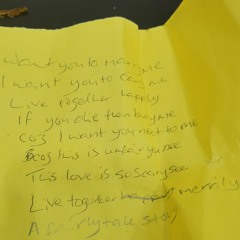 I want you to marry me
I want you to carry me
Live together happily
If you die then bury me
coz I want you next to me
coz this is unfair you see
This love is so scary see
Live together merrily
A fairytale story